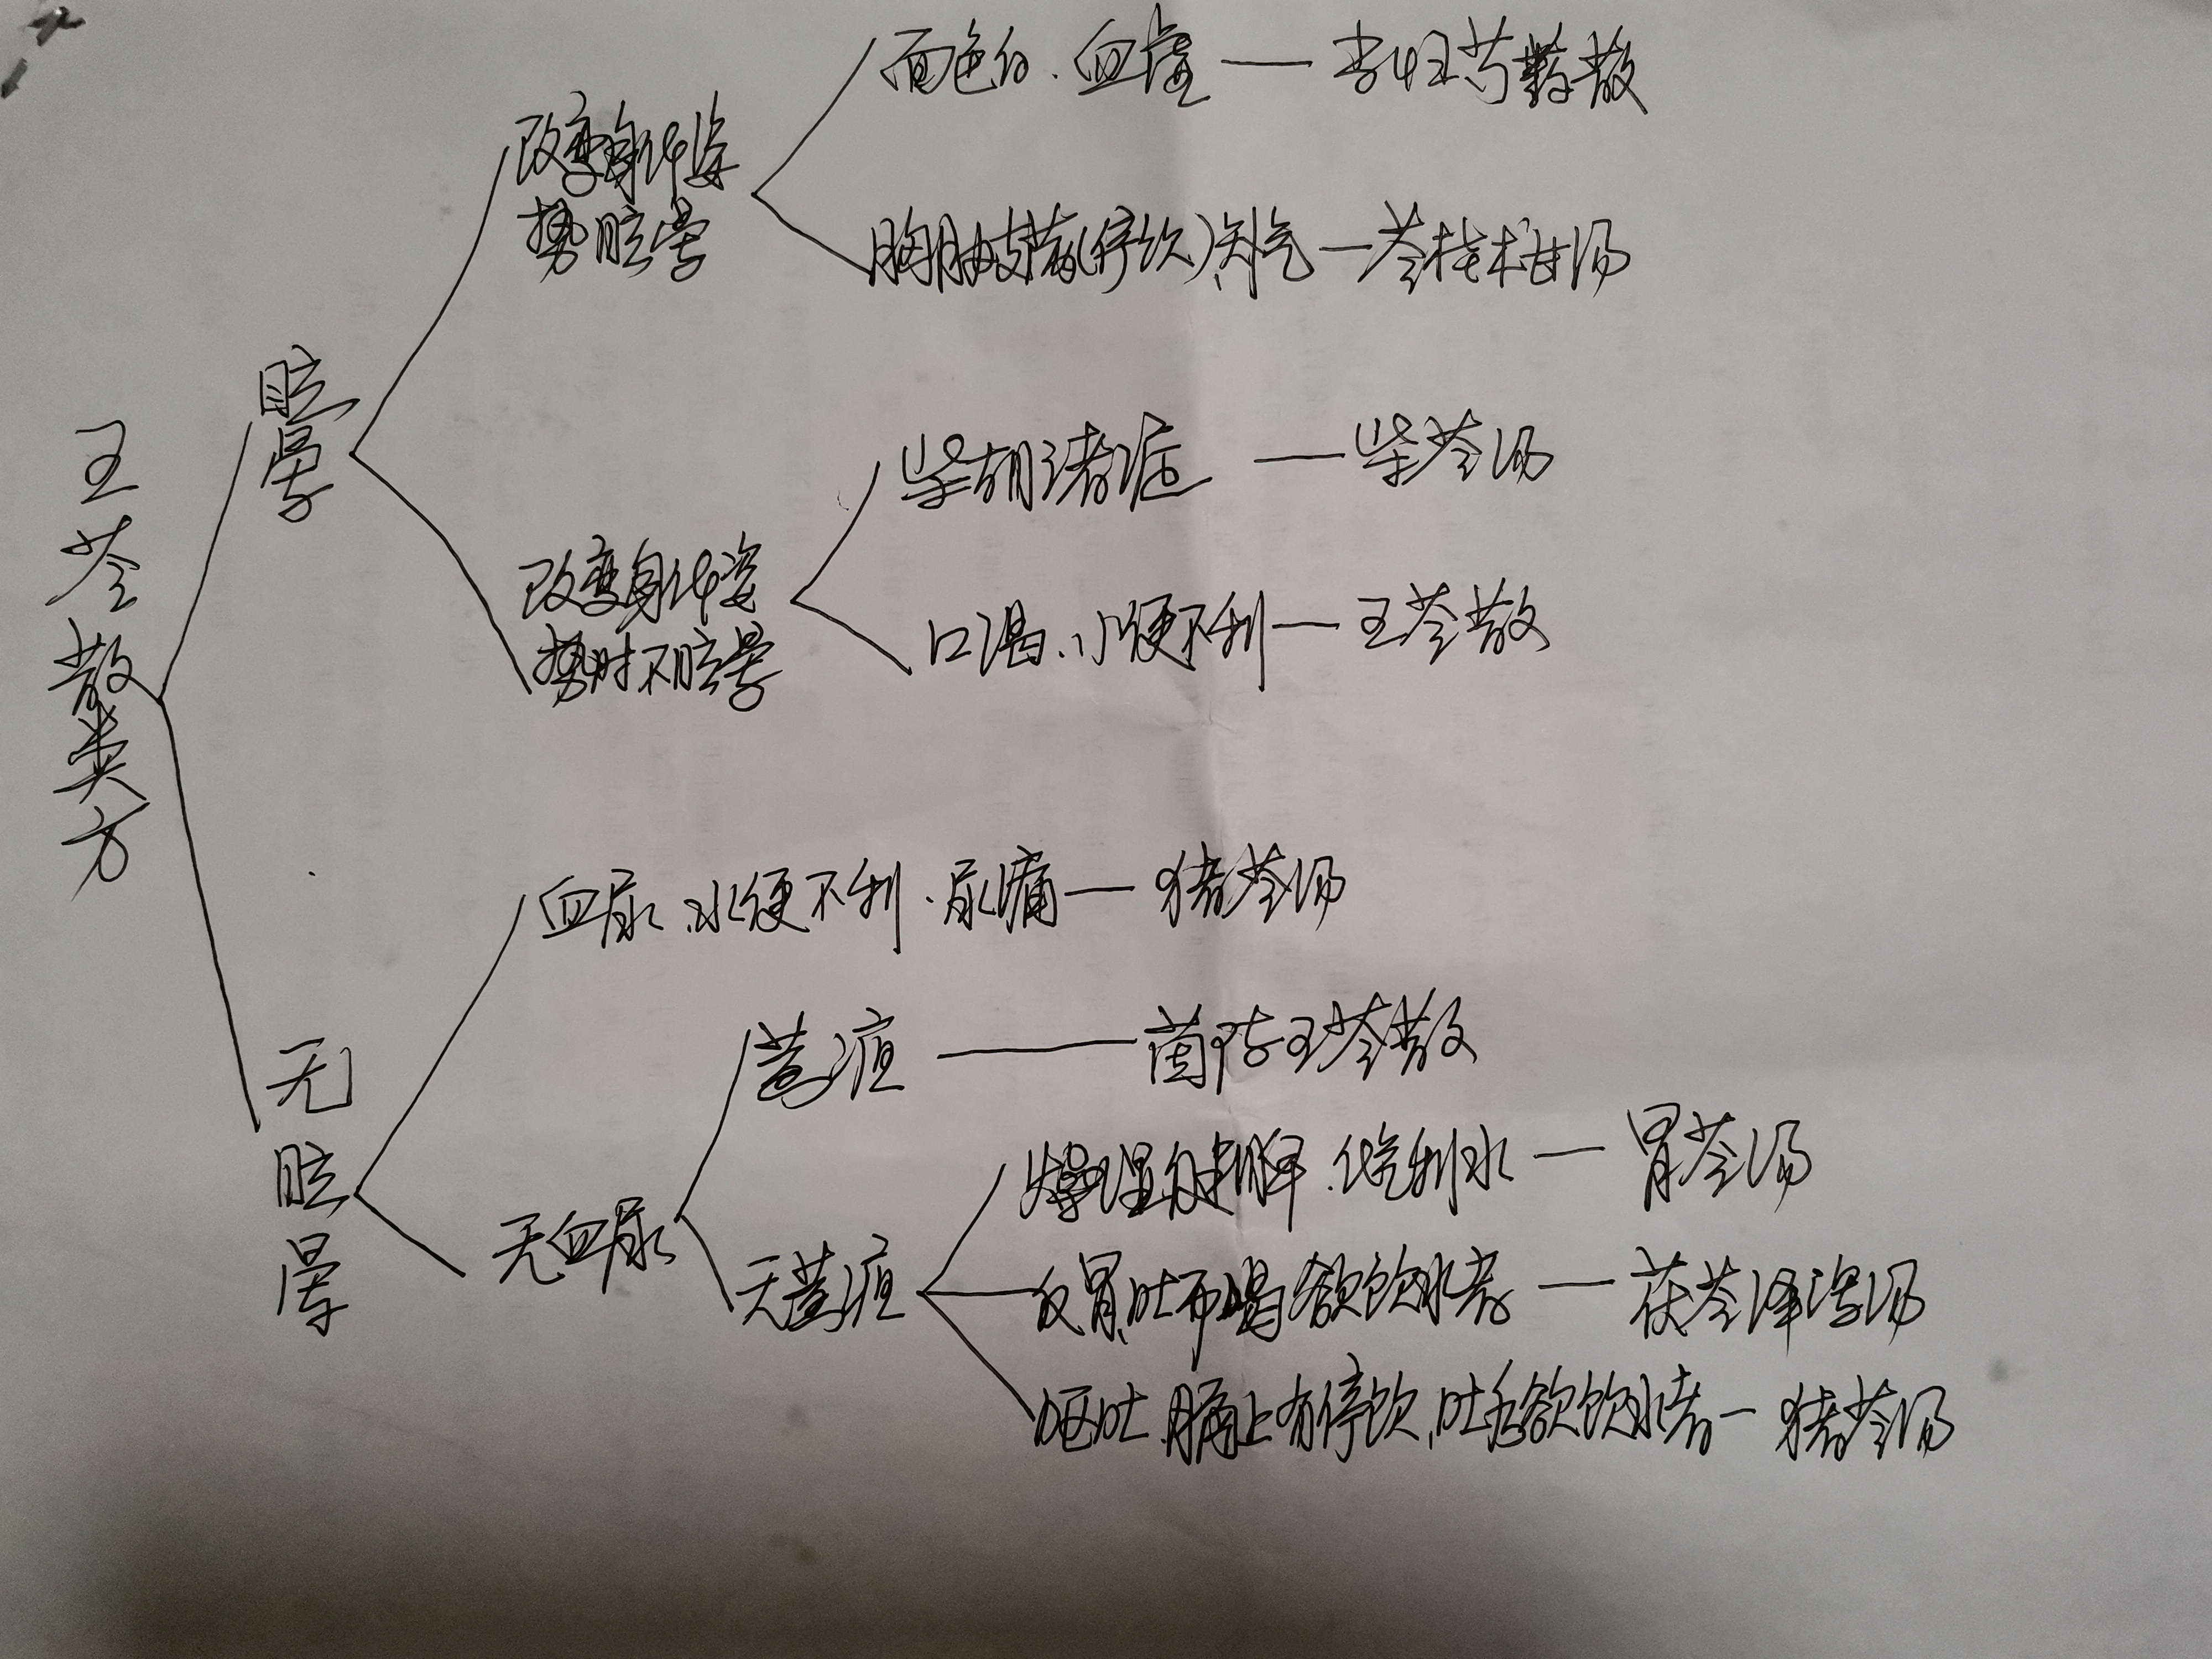 五苓散类方
眩晕
改变身体姿
势眩晕
面色白、血虚——当归芍药散
胸胁支满(停饮)、短气—苓桂术甘汤
改变身体姿
势时不眩晕
柴胡诸症——柴苓汤
口渴、小便不利—五苓散
无眩晕
血尿、小便不利、尿痛—猪苓汤
无血尿
黄疸——茵陈五苓散
无黄疸
燥湿健脾、化气利水—胃苓汤
反胃,吐而渴欲饮水者—茯苓泽泻汤
呕吐,膈上有停饮,吐后欲饮水者—猪苓汤